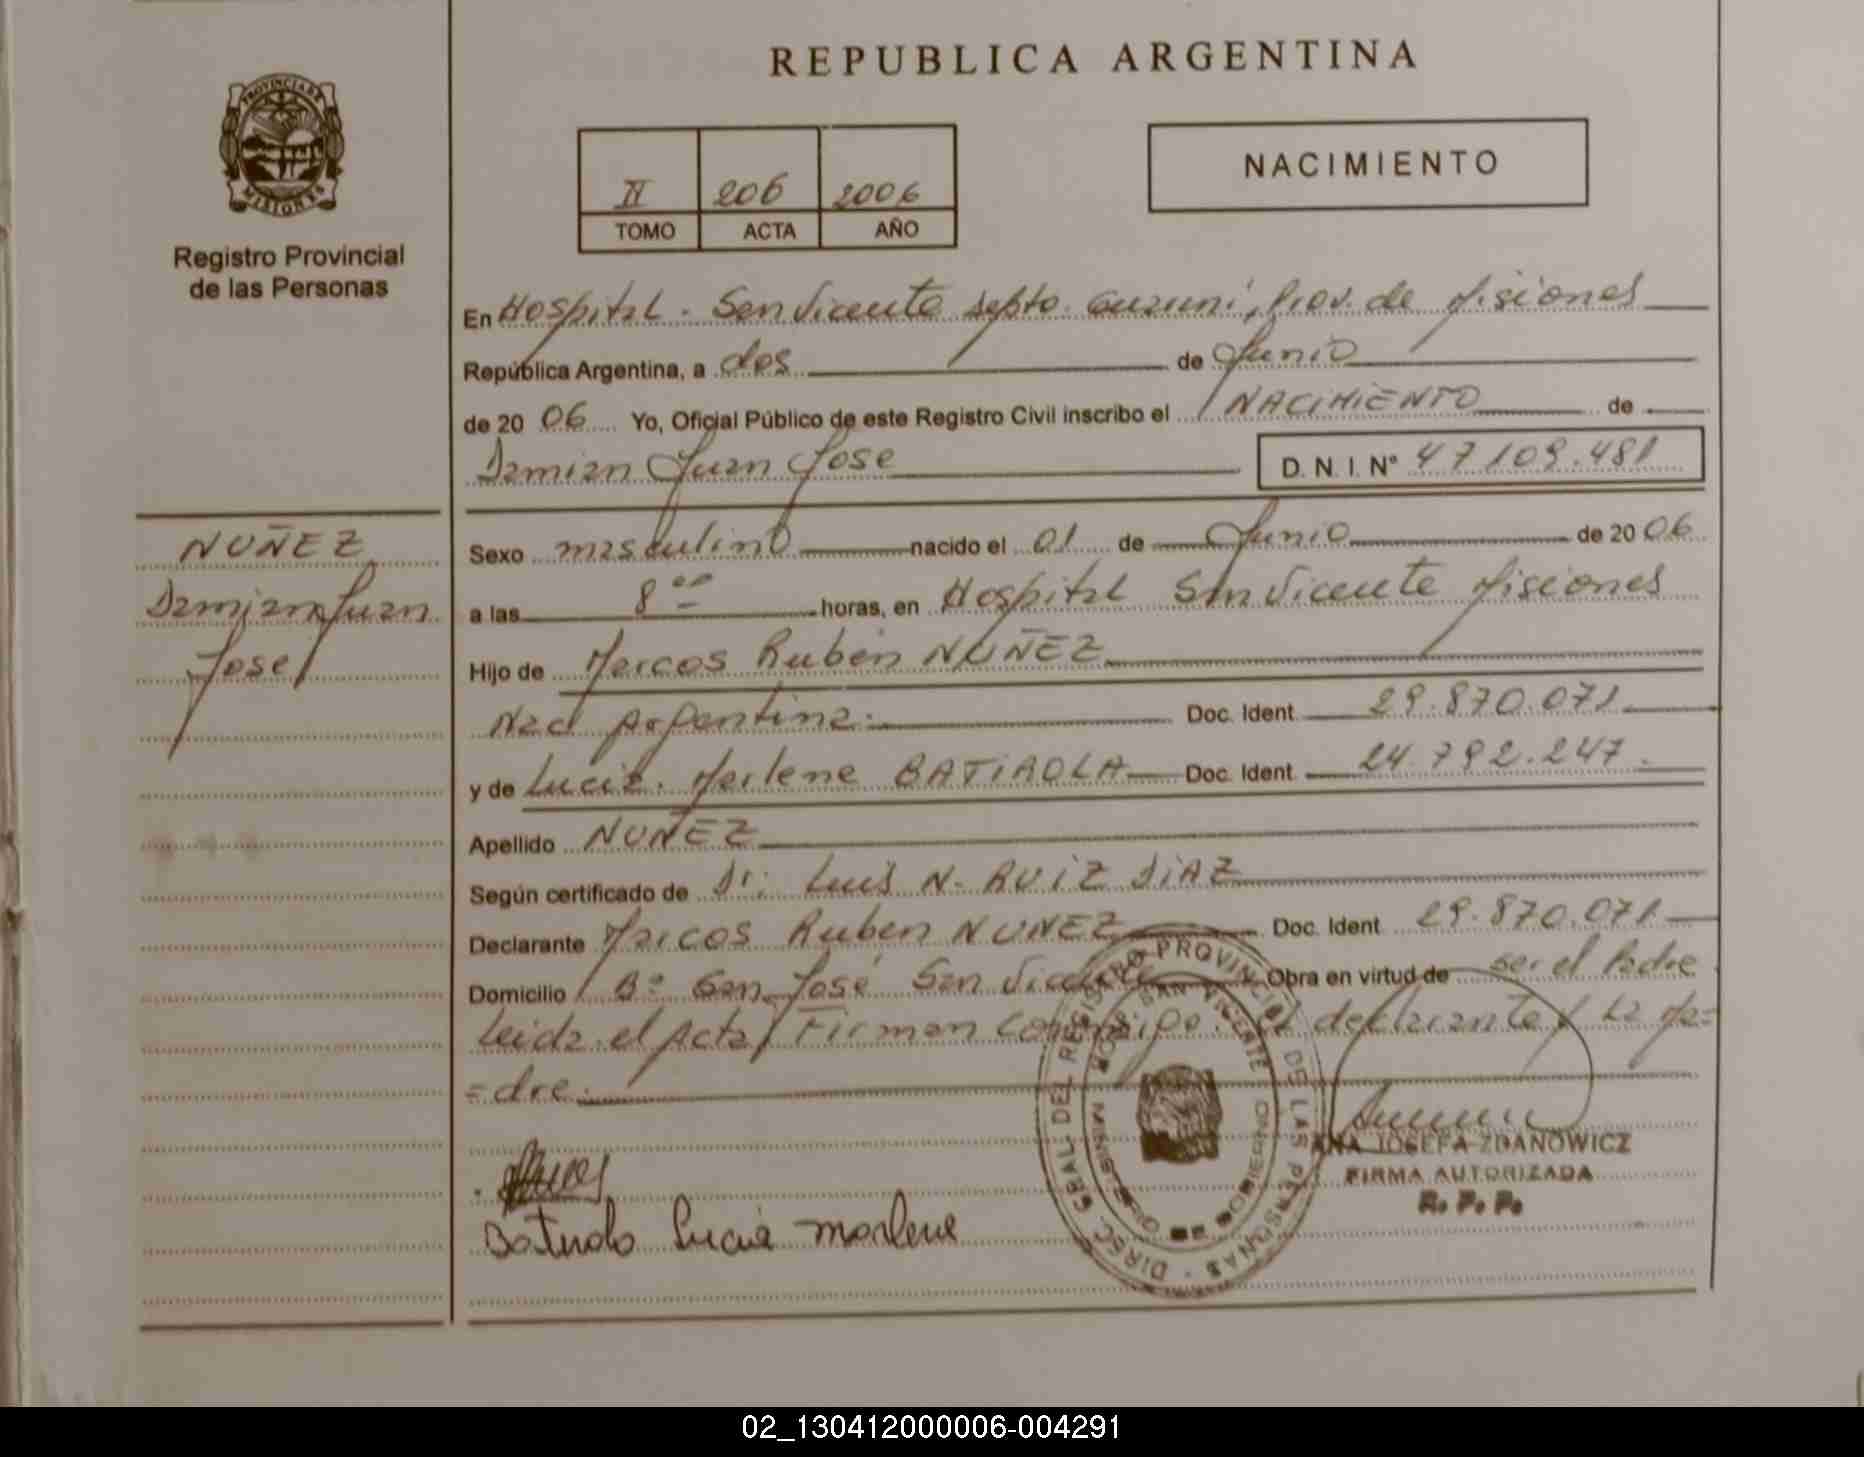 REPUBLICA ARGENTINA
PROVINCIA DE
MISIONES
Registro Provincial
de las Personas
II 206 2006
TOMO ACTA AÑO
NACIMIENTO
En Hospital - San Vicente Depto. Guarani, Prov. de Misiones
República Argentina, a dos de Junio
de 20 06 Yo, Oficial Público de este Registro Civil inscribo el NACIMIENTO de
Damian Juan Jose D. N. I. N° 47.109.481
NUÑEZ
Damian Juan
Jose
Sexo masculino nacido el 01 de Junio de 20 06
a las 8 00 horas, en Hospital San Vicente Misiones
Hijo de Marcos Ruben NUÑEZ
Nac. Argentina. Doc. Ident. 29.870.071
y de Lucia. Marlene BATIROLA Doc. Ident. 24.792.247.
Apellido NUÑEZ
Según certificado de Dr: Luis N. RUIZ DIAZ
Declarante Marcos Ruben NUÑEZ Doc. Ident. 29.870.071
Domicilio B° San José San Vicente Obra en virtud de ser el Padre
Leida el Acta, Firman Conmigo. el declarante y La Ma=
=dre.
Lucia Marlene
DIREC. GRAL DEL REGISTRO PROVINCIAL DE LAS PERSONAS
SAN VICENTE
MINISTERIO DE GOBIERNO
ANA JOSEFA ZDANOWICZ
FIRMA AUTORIZADA
R. P. P.
02_130412000006-004291